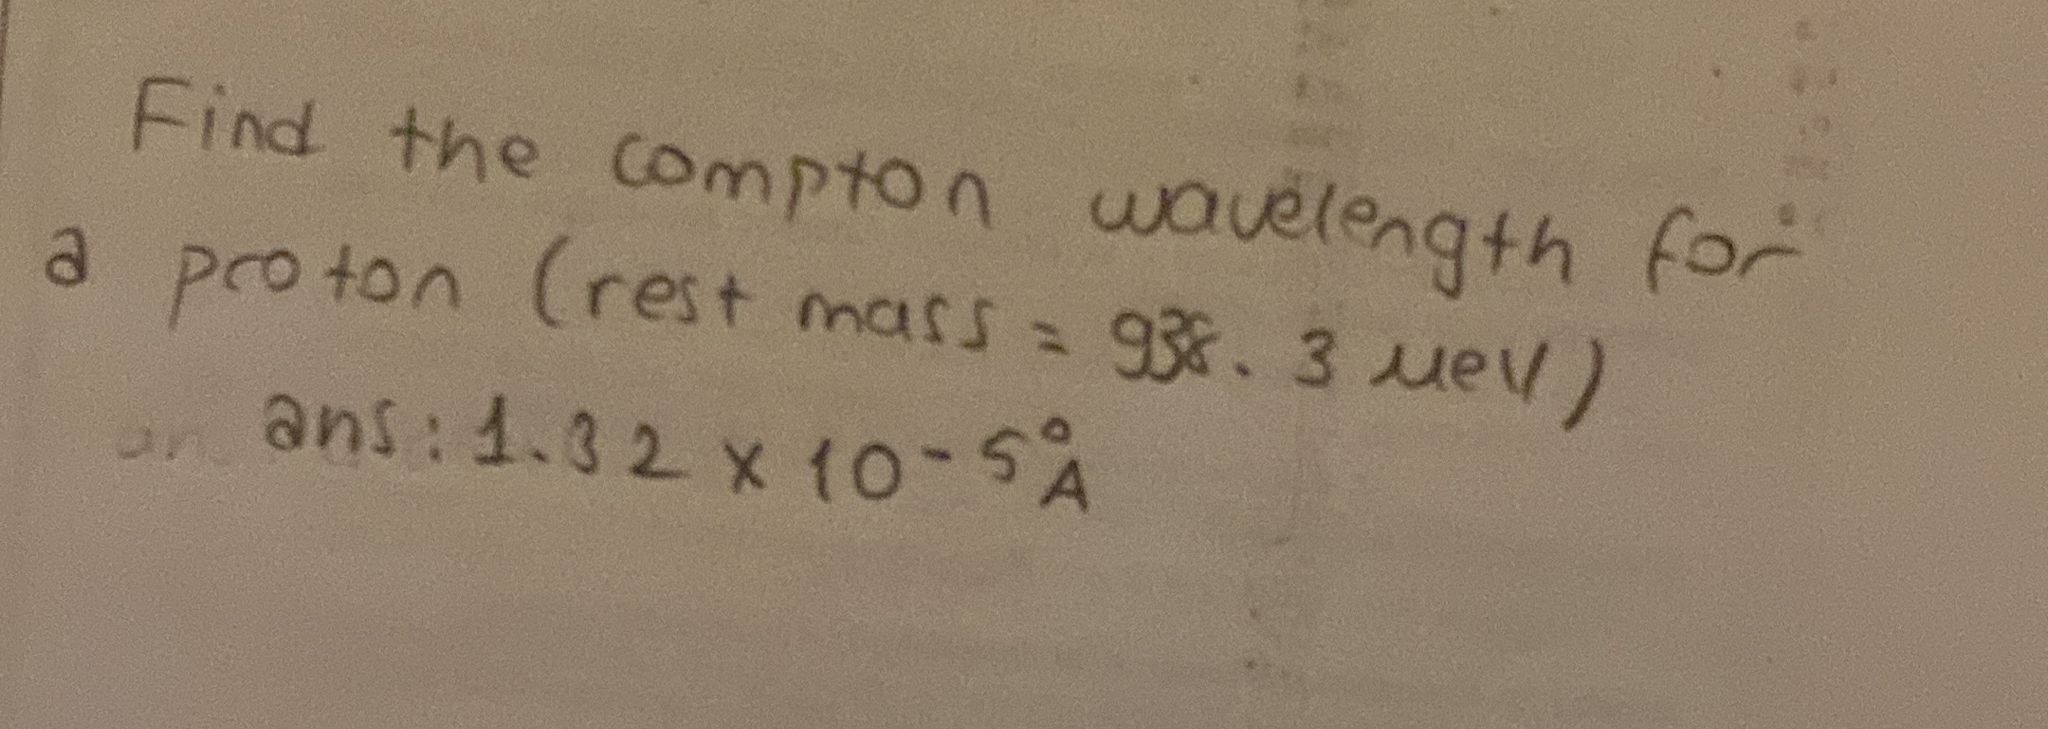 Find the compton wavelength for
a proton (rest mass = 938.3 MeV)
ans: 1.32 x 10-5 Å